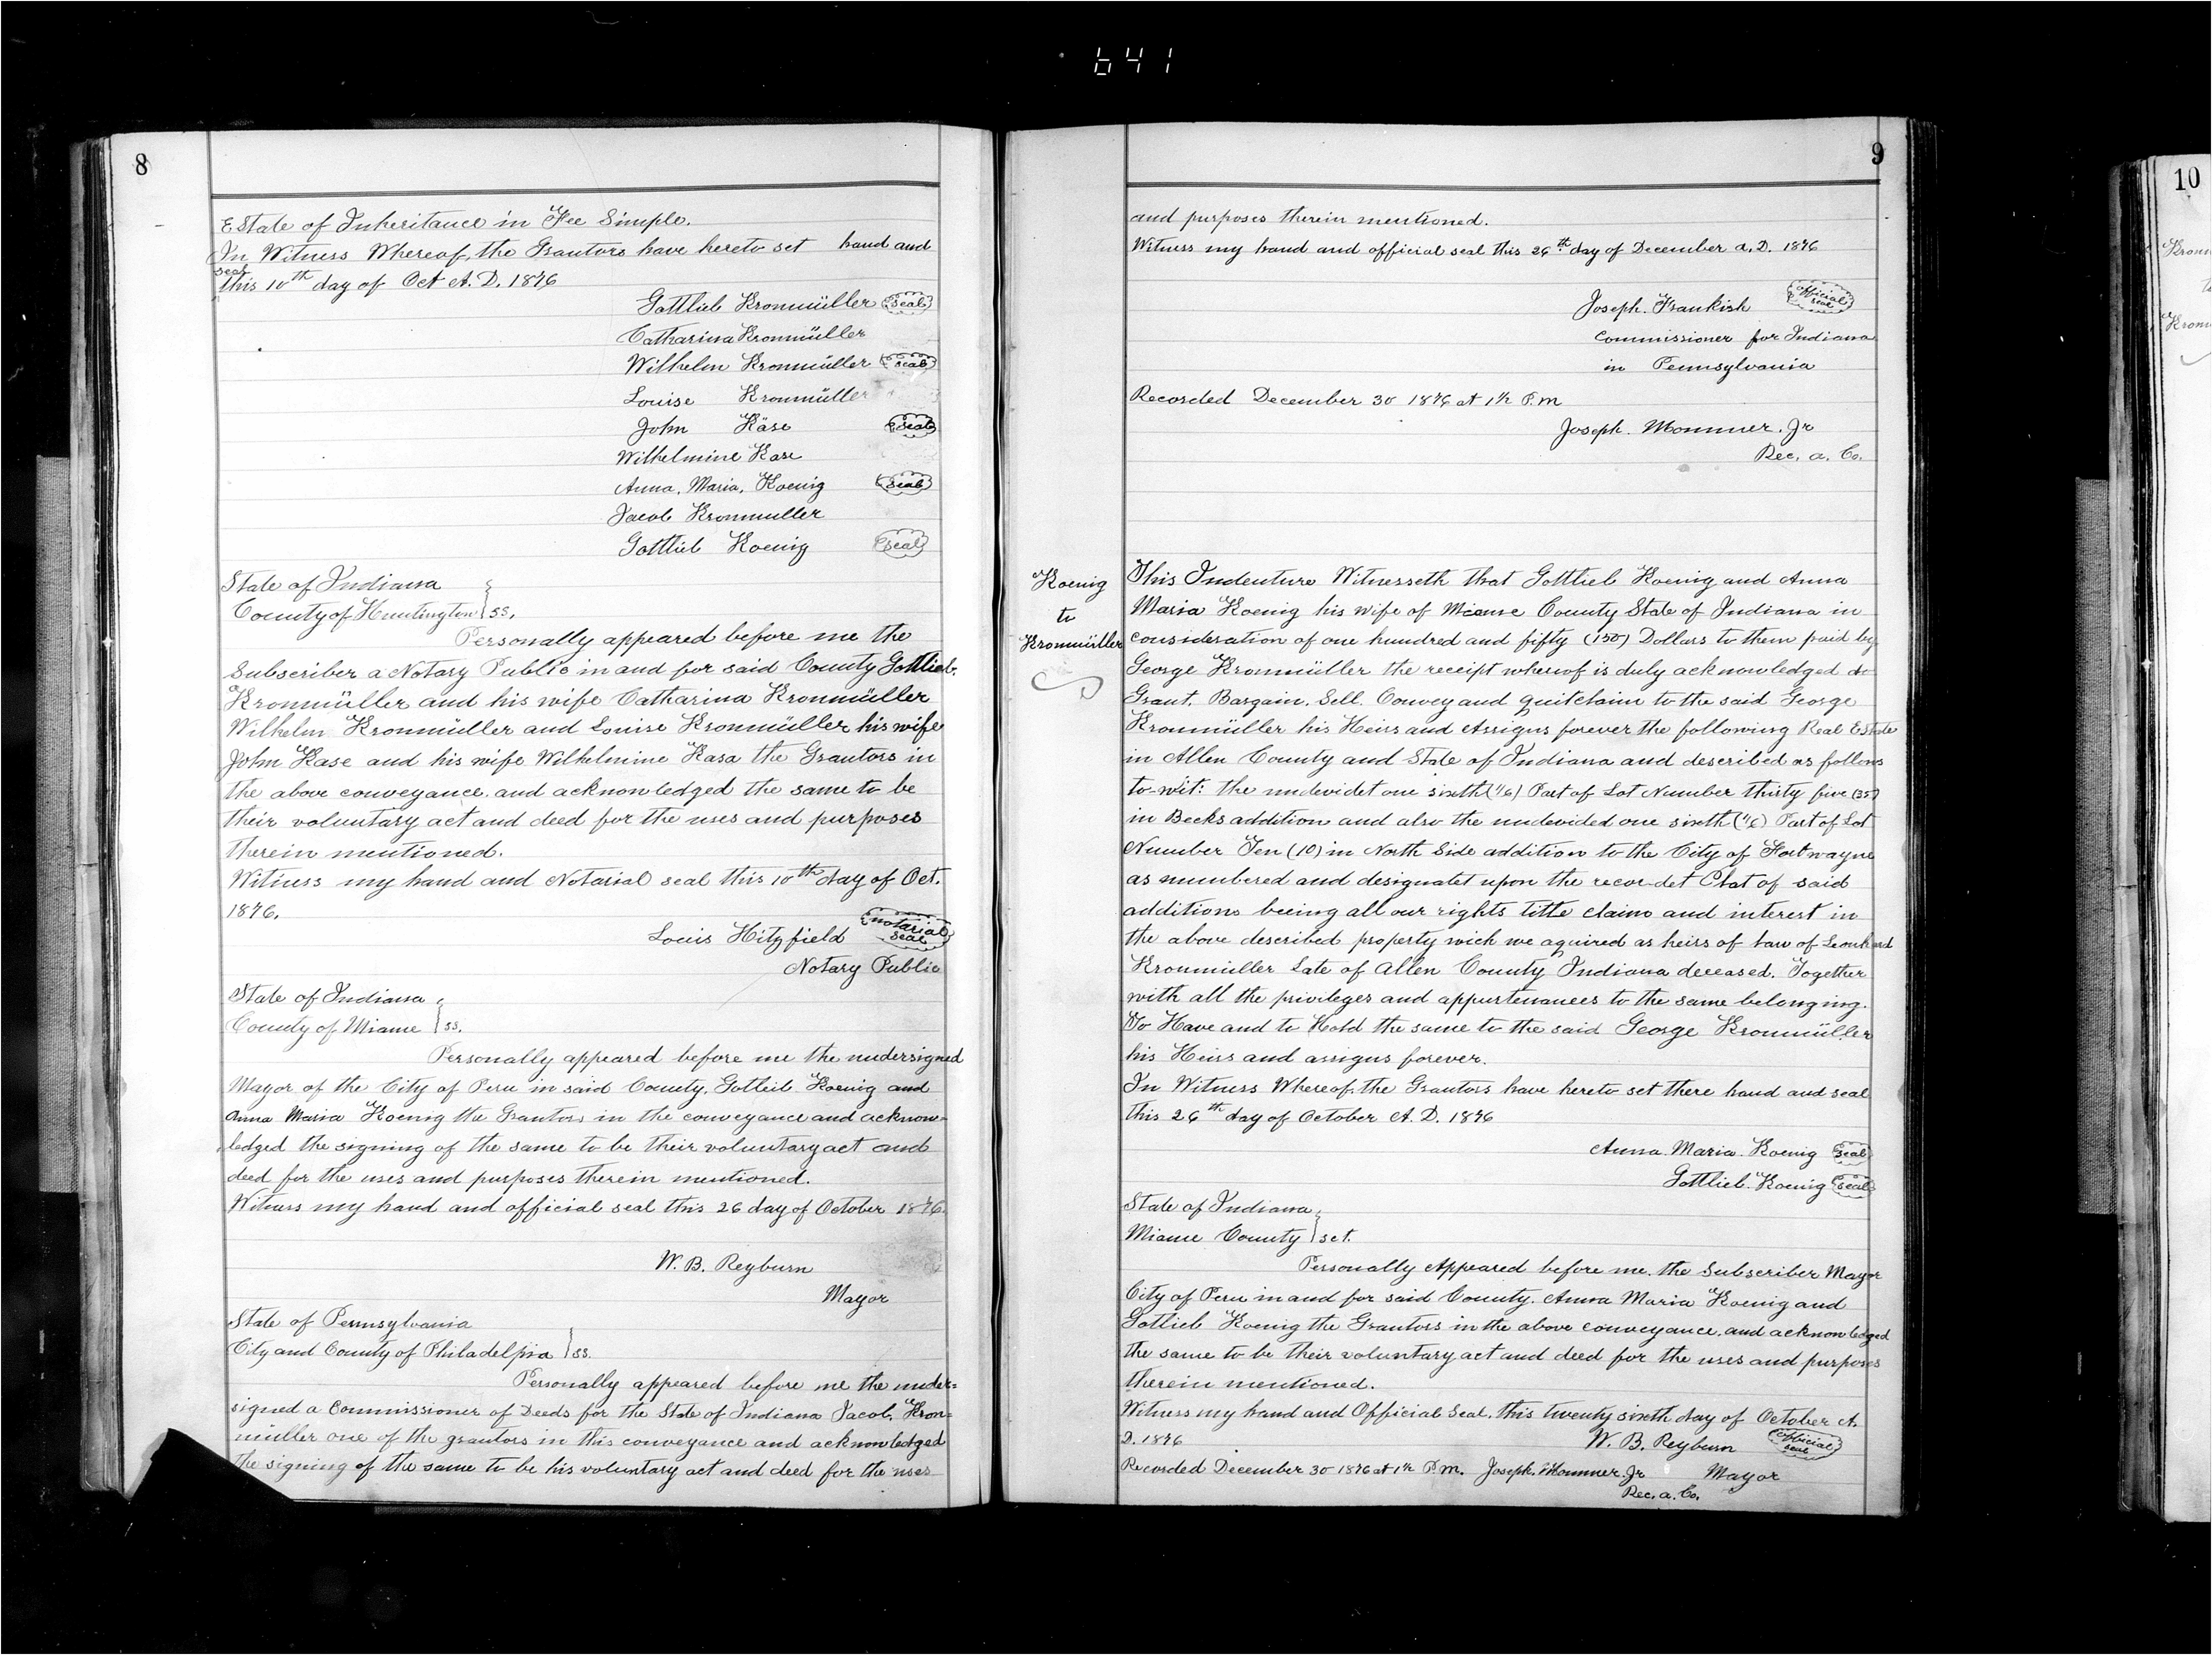 641
8
EState of Inheritance in Fee Simple.
In Witness Whereof, the Grantors have hereto set hand and
seal
this 10th day of Oct A.D. 1876
Gottlieb Kronmüller seal
Catharina Kronmüller
Wilhelm Kronmüller seal
Louise Kronmüller
John Käse seal
Wilhelmine Kase
Anna, Maria, Koenig seal
Jacob Kronmuller
Gottlieb Koenig seal
State of Indiana
County of Huntington } SS.
Personally appeared before me the
Subscriber a Notary Public in and for said County Gottlieb.
Kronmüller and his wife Catharina Kronmüller
Wilhelm Kronmüller and Louise Kronmüller his wife
John Kase and his wife Wilhelmine Kasa the Grantors in
the above conveyance. and acknowledged the same to be
their voluntary act and deed for the uses and purposes
therein mentioned.
Witness my hand and Notarial seal this 10th day of Oct.
1876.
Louis Hitzfield notarial seal
Notary Public
State of Indiana
County of Miame } ss.
Personally appeared before me the undersigned
Mayor of the City of Peru in said County, Gotleib Koenig and
Anna Maria Koenig the Grantors in the conveyance and acknow=
ledged the signing of the same to be their voluntary act and
deed for the uses and purposes therein mentioned.
Witness my hand and official seal this 26 day of October 1876.
W. B. Reyburn
Mayor
State of Pennsylvania
City and County of Philadelpia } ss.
Personally appeared before me the under=
signed a Commissioner of Deeds for the State of Indiana Jacob, Kron=
müller one of the grantors in this conveyance and acknowledged
the signing of the same to be his voluntary act and deed for the uses
9
and purposes therein mentioned.
Witness my hand and official seal this 26th day of December A.D. 1876
Joseph. Frankish official seal
Commissioner for Indiana
in Pennsylvania
Recorded December 30 1876 at 1½ P.M
Joseph. Mommer. Jr
Rec. a. Co.
Koenig
to
Kronmüller
This Indenture Witnesseth that Gottlieb Koenig and Anna
Maria Koenig his wife of Miame County State of Indiana in
consideration of one hundred and fifty (150) Dollars to them paid by
George Kronmüller the receipt wherof is duly acknowledged do
Grant. Bargain. Sell. Convey and quitclaim to the said George
Kronmüller his Heirs and Assigns forever the following Real Estate
in Allen County and State of Indiana and described as follows
to-wit: the undevidet one sixth (1/6) Part of Lot Number thirty five (35)
in Becks addition and also the undevided one sixth (1/6) Part of Lot
Number Ten (10) in North Side addition to the City of Fort wayne
as numbered and designatet upon the recordet Plat of said
additions beeing all our rights title claims and interest in
the above described property wich we aquired as heirs of law of Leonhard
Kronmüller Late of Allen County Indiana deceased. Together
with all the privileges and appurtenances to the same belonging.
To Have and to Hold the same to the said George Kronmüller
his Heirs and assigns forever.
In Witness Whereof, the Grantors have hereto set there hand and seal
this 26th day of October A.D. 1876
Anna. Maria. Koenig seal
Gottlieb. Koenig seal
State of Indiana
Miame County } sct.
Personally Appeared before me. the Subscriber Mayor
City of Peru in and for said County. Anna Maria Koenig and
Gotlieb Koenig the Grantors in the above conveyance. and acknowledged
the same to be their voluntary act and deed for the uses and purposes
therein mentioned.
Witness my hand and Official Seal. this twenty sixth day of October A.
D. 1876 W. B. Reyburn official seal
Recorded December 30 1876 at 1½ P.M. Joseph. Mommer Jr Mayor
Rec. a. Co.
10